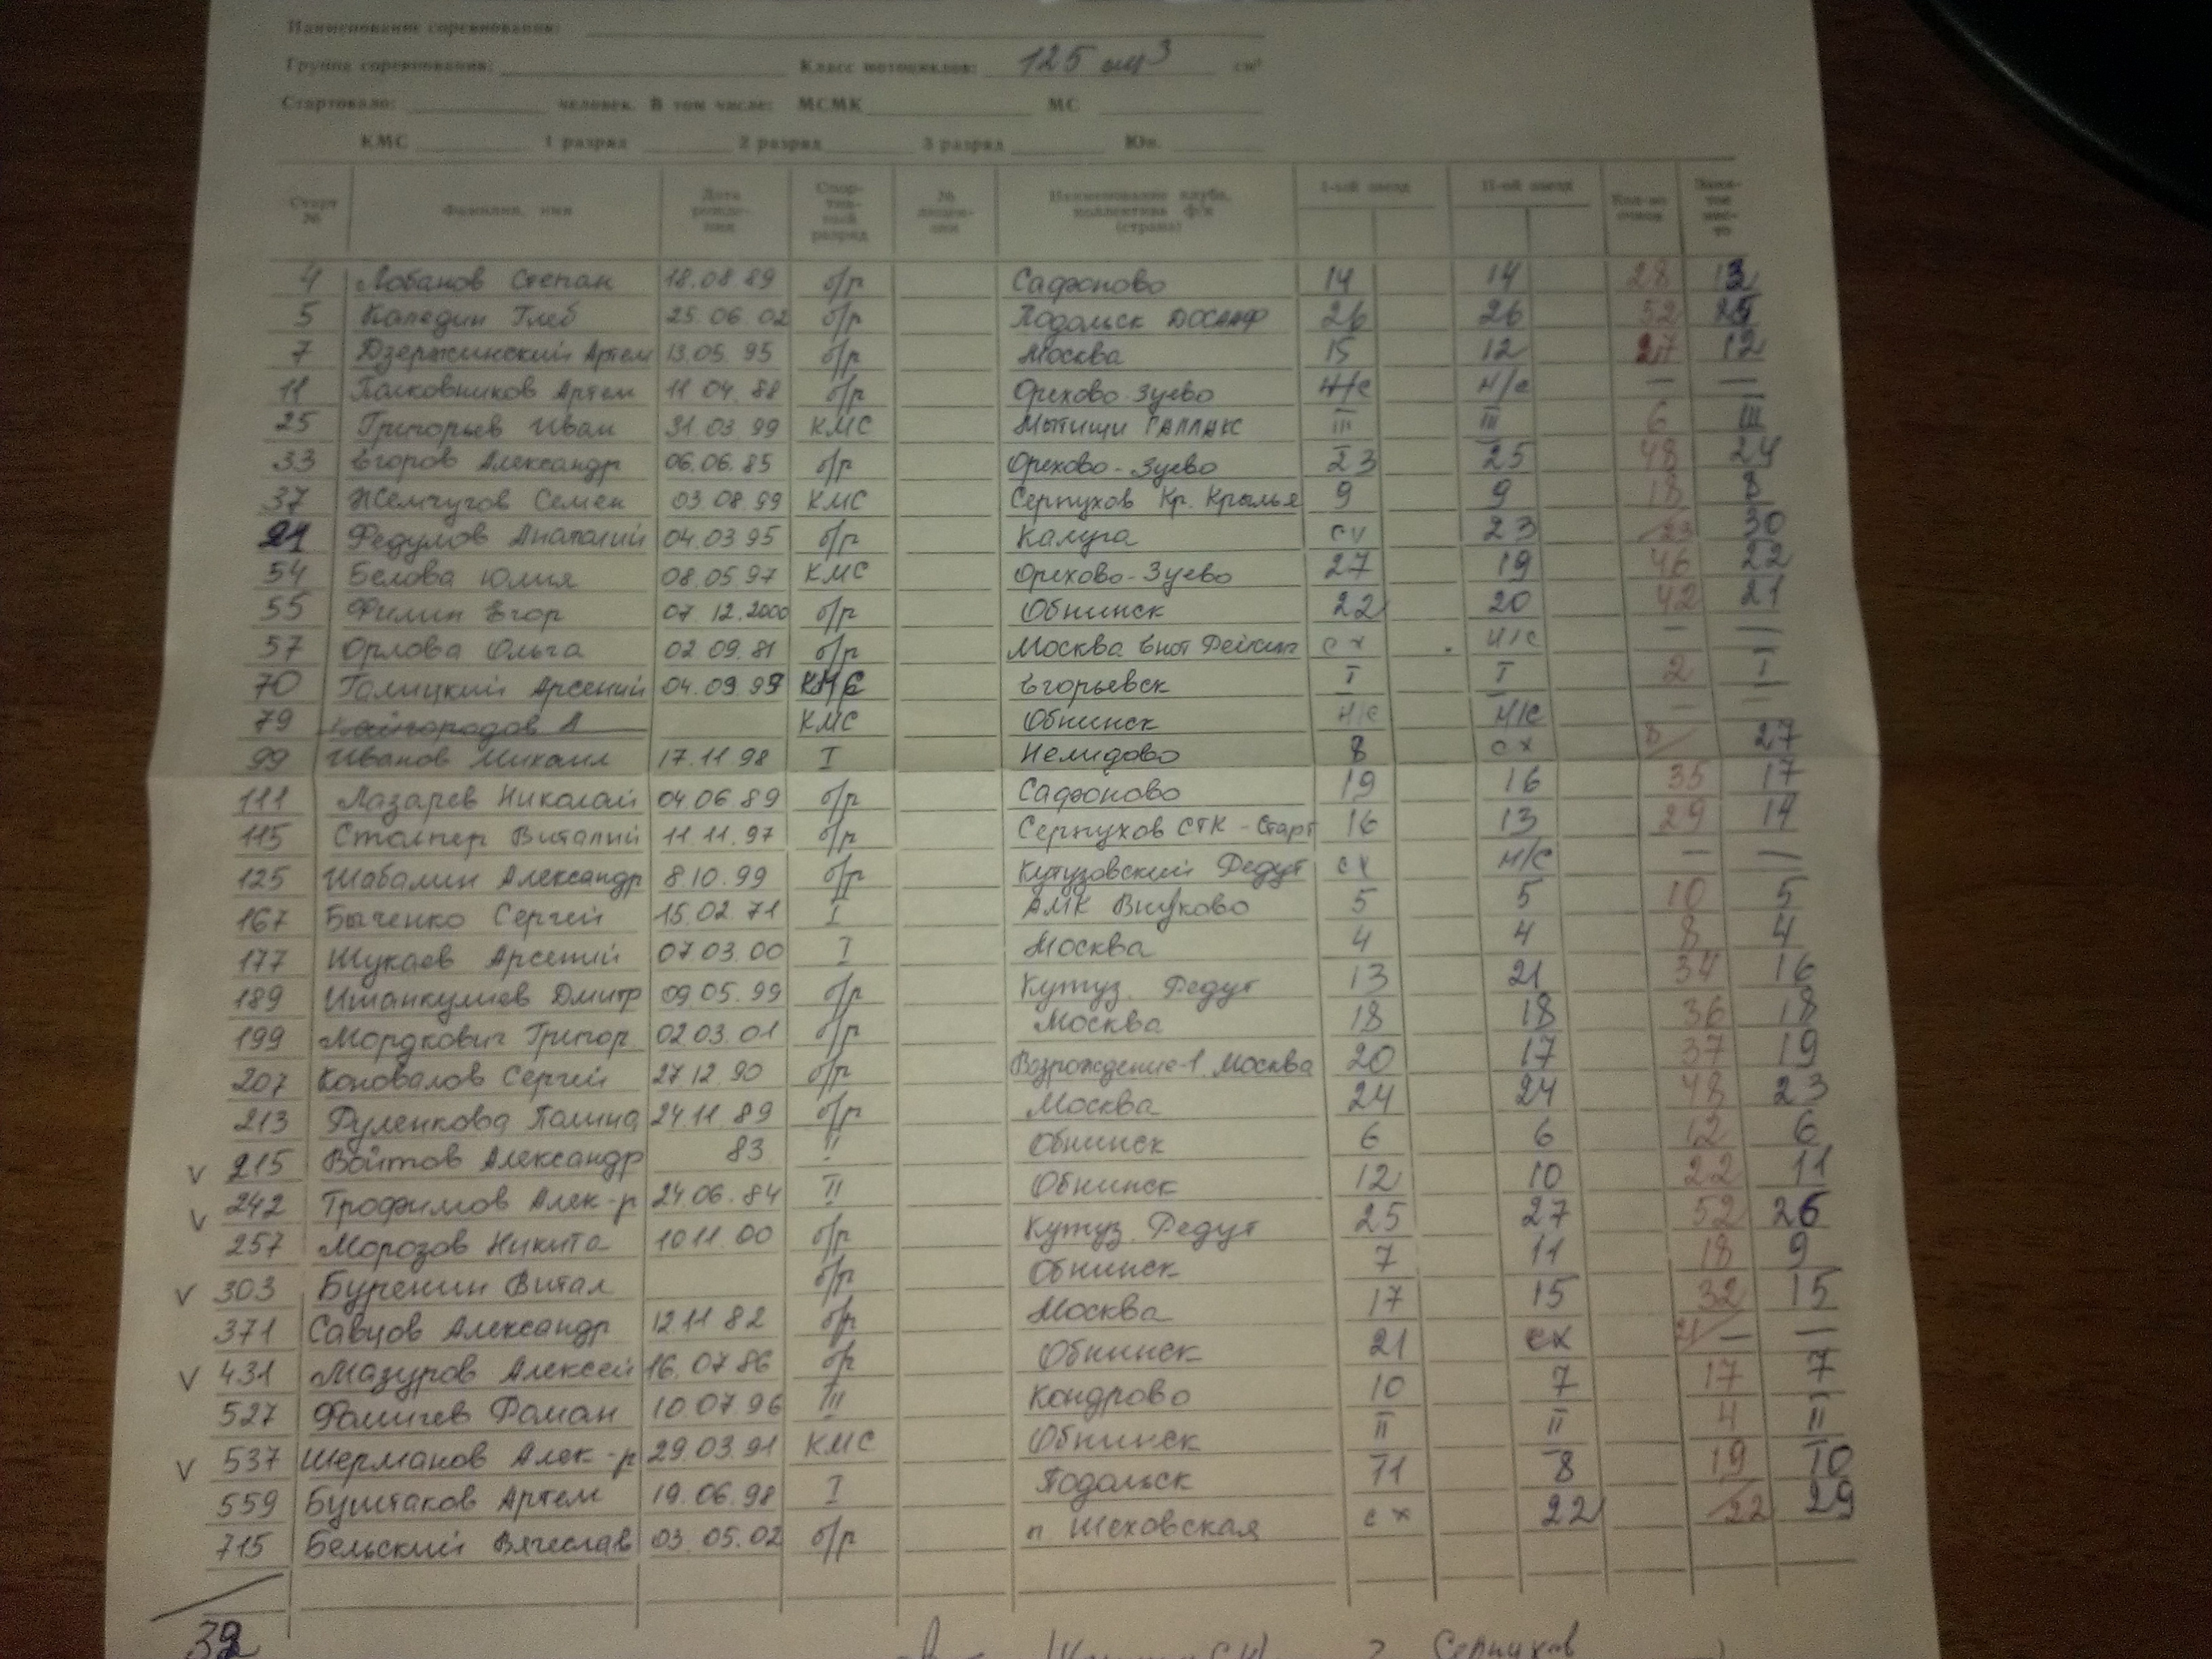 Наименование соревнования:
Группа соревнования: Класс мотоциклов: 125 см³ см³
Стартовало: человек. В том числе: МСМК МС
КМС 1 разряд 2 разряд 3 разряд Юн.
Старт № Фамилия, имя Дата рождения Спортивный разряд № лицензии Наименование клуба, коллектива ф/к (страна) I-ый заезд II-ой заезд Кол-во очков Занятое место
4 Лобанов Степан 18.08.89 б/р Сафоново 14 14 28 13
5 Каледин Глеб 25.06.02 б/р Подольск ДОСААФ 26 26 52 25
7 Дзержинский Артем 13.05.95 б/р Москва 15 12 27 12
11 Полковников Артем 11 04.88 б/р Орехово-Зуево н/с н/с — —
25 Григорьев Иван 31.03.99 КМС Мытищи ГАЛЛАКС III III 6 III
33 Егоров Александр 06.06.85 б/р Орехово-Зуево 23 25 48 24
37 Жемчугов Семен 03 08.99 КМС Серпухов Кр. Крылья 9 9 18 8
Федулов Анатолий 04.03 95 б/р Калуга сх 23 23 30
54 Белова Юлия 08.05.97 КМС Орехово-Зуево 27 19 46 22
55 Филин Егор 07 12.2000 б/р Обнинск 22 20 42 21
57 Орлова Ольга 02 09.81 б/р Москва сх н/с — —
70 Галицкий Арсений 04.09.99 КМС Егорьевск I I 2 I
79 Кайгородов А КМС Обнинск н/с н/с — —
99 Иванов Михаил 17.11.98 I Нелидово 8 сх 8 27
111 Лазарев Николай 04.06.89 б/р Сафоново 19 16 35 17
115 Столпер Виталий 11.11.97 б/р Серпухов СТК-Старт 16 13 29 14
125 Шабалин Александр 8.10.99 б/р Кутузовский Редут сх н/с — —
167 Быченко Сергей 15.02.71 I АМК Внуково 5 5 10 5
177 Шукаев Арсений 07 03.00 I Москва 4 4 8 4
189 Ишанкулиев Дмитр 09 05.99 б/р Кутуз. Редут 13 21 34 16
199 Мордкович Григор 02 03.01 б/р Москва 18 18 36 18
207 Коновалов Сергей 27 12.90 б/р Возрождение-1 Москва 20 17 37 19
213 Руленкова Полина 24.11.89 б/р Москва 24 24 48 23
v 215 Войтов Александр 83 II Обнинск 6 6 12 6
v 242 Трофимов Алек-р 24.06.84 II Обнинск 12 10 22 11
257 Морозов Никита 10 11.00 б/р Кутуз. Редут 25 27 52 26
v 303 Буренин Витал б/р Обнинск 7 11 18 9
371 Савцов Александр 12 11 82 б/р Москва 17 15 32 15
v 431 Мазуров Алексей 16.07.86 б/р Обнинск 21 сх 21 — —
527 Фомичев Роман 10.07.96 III Кондрово 10 7 17 7
v 537 Шерманов Алек-р 29.03.91 КМС Обнинск II II 4 II
559 Буштаков Артем 19.06.98 I Подольск 11 8 19 10
715 Бельский Вячеслав 03.05.02 б/р п. Шеховская сх 22 22 29
Серпухов